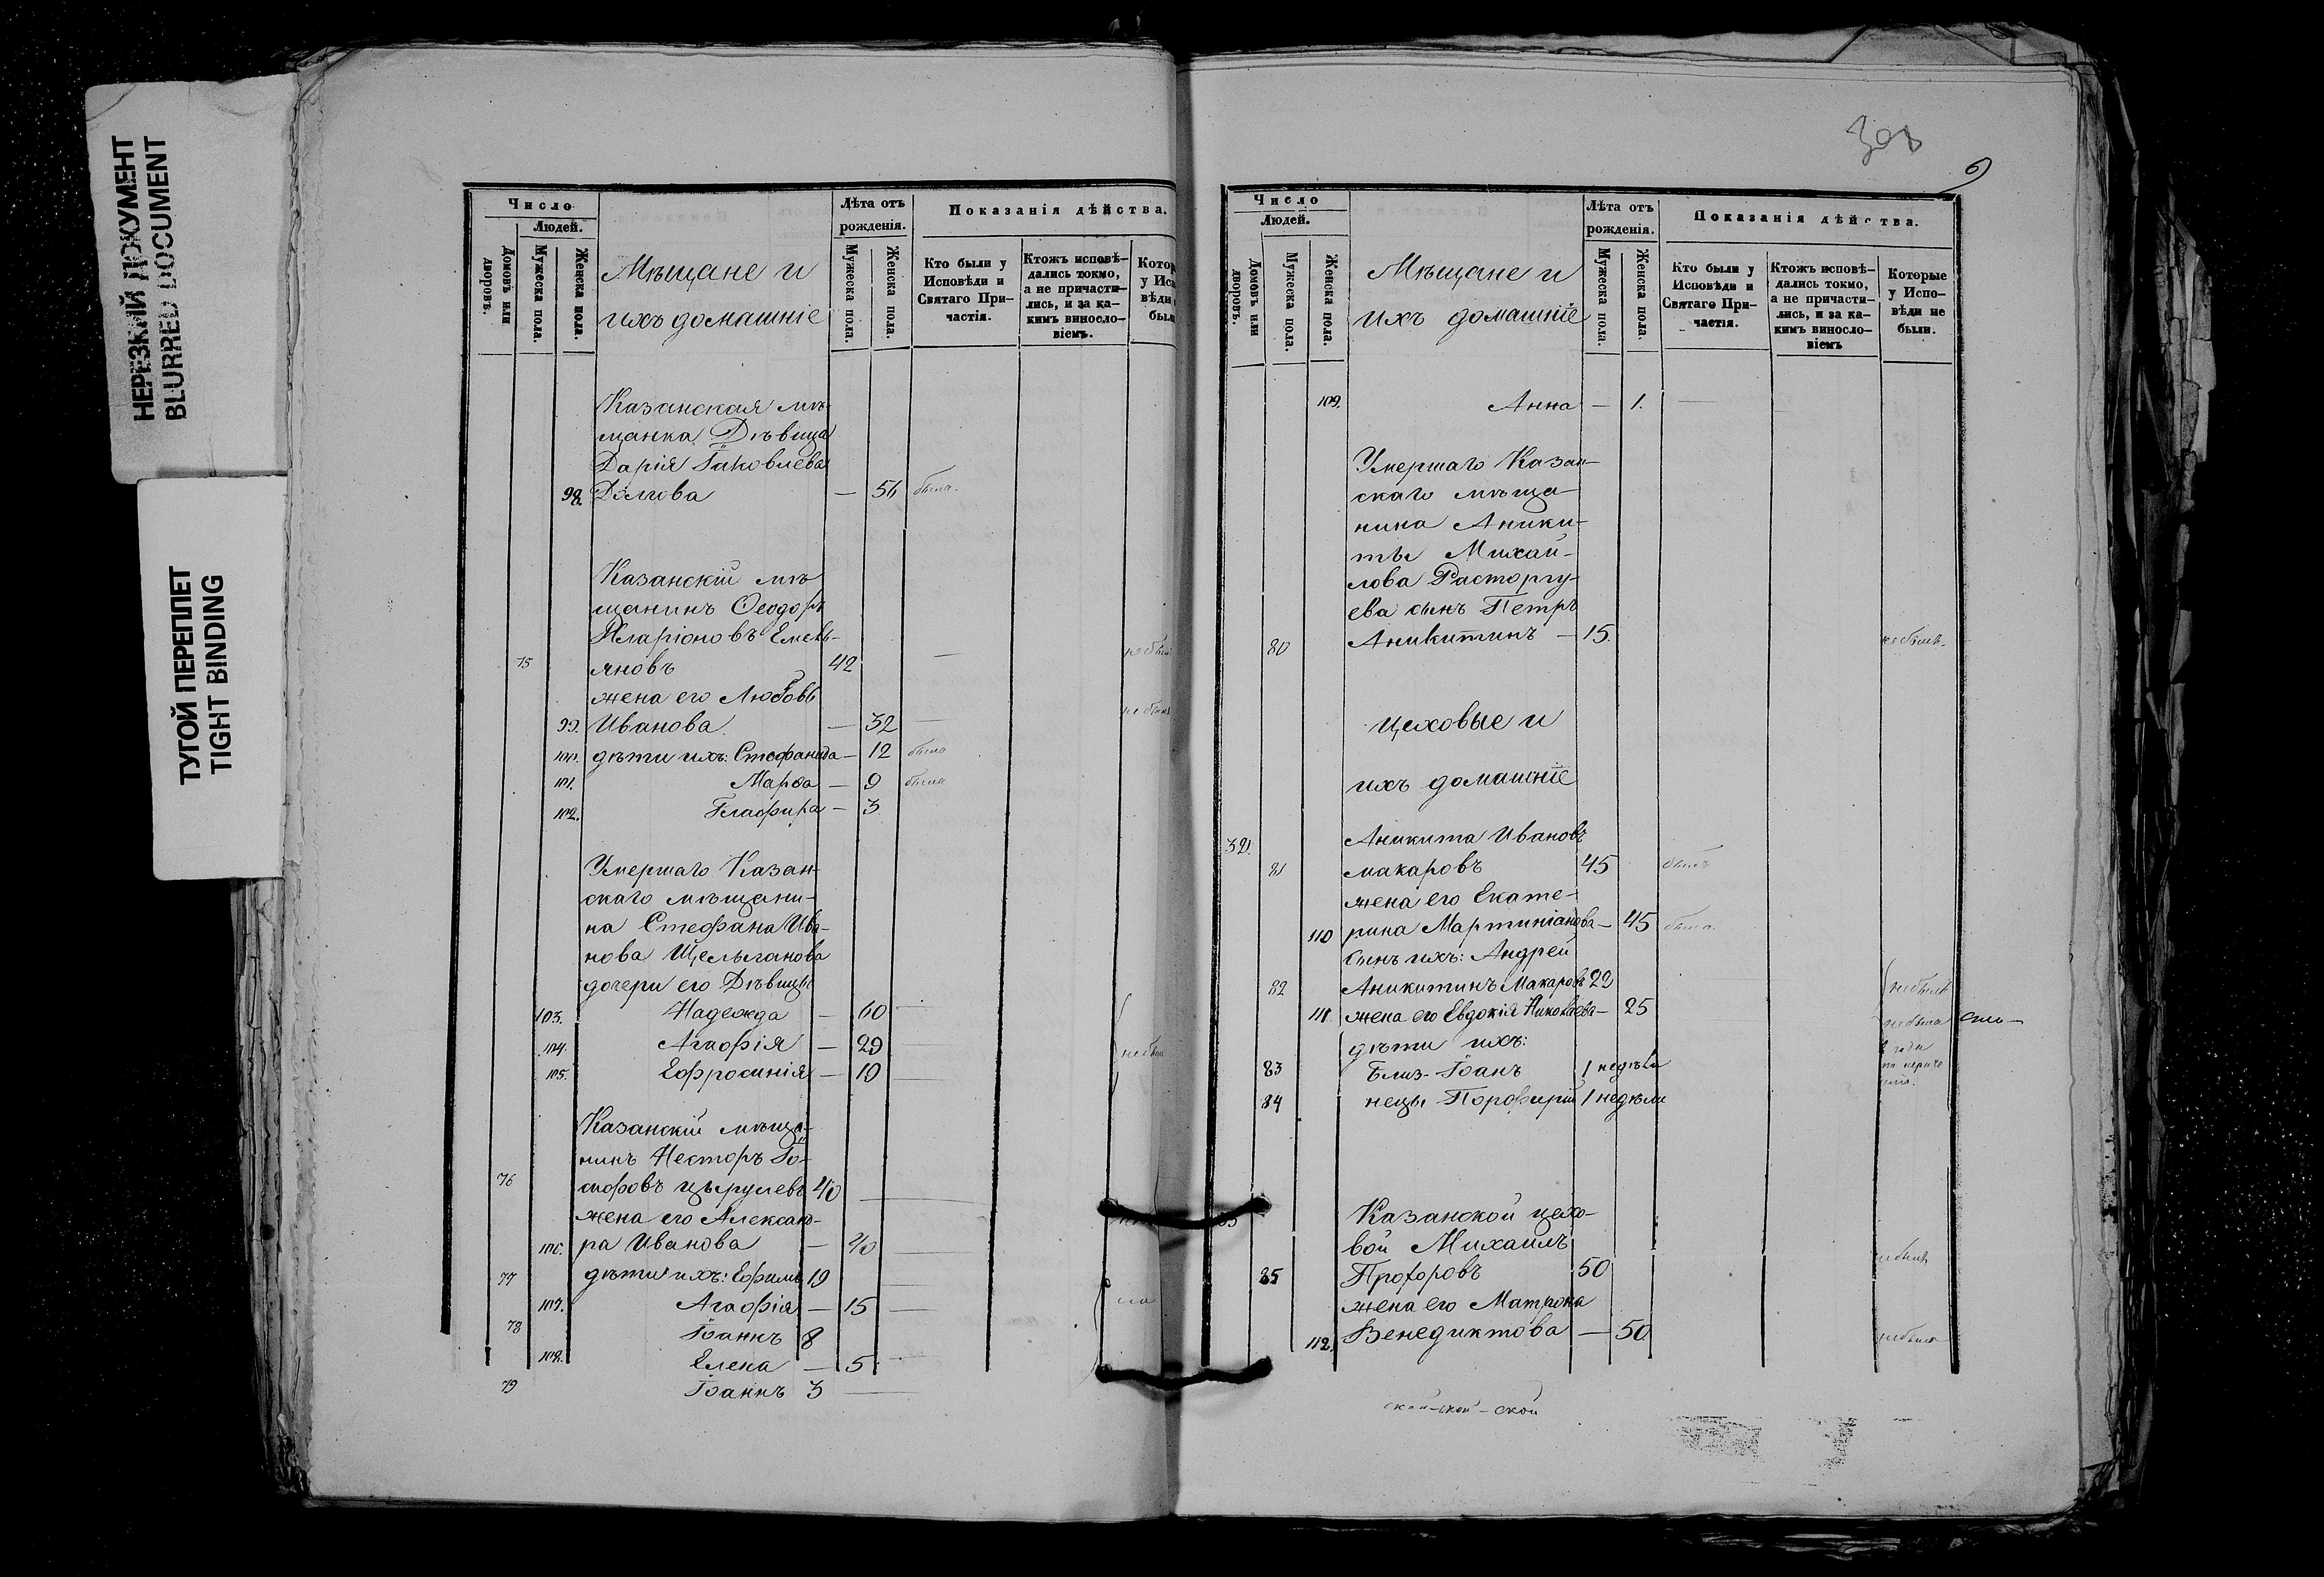 НЕРЕЗКИЙ ДОКУМЕНТ
BLURRED DOCUMENT
ТУГОЙ ПЕРЕПЛЕТ
TIGHT BINDING
Число
Людей.
Домовъ или дворовъ.
Мужеска пола.
Женска пола.
Мѣщане и
ихъ домашніе
Лѣта отъ рожденія.
Мужеска пола.
Женска пола.
Показанія дѣйства.
Кто были у Исповѣди и Святаго При-частія.
Ктожъ исповѣ-дались токмо, а не причасти-лись, и за ка-кимъ виносло-віемъ.
Казанская мѣ-
щанка Дѣвица
Дарія Іаковлева
98. Долгова — 56 была.
Казанскій мѣ
щанинъ Ѳеодоръ
Иларіоновъ Емель-
75 яновъ 42 —
жена его Любовь
99. Иванова — 32 —
100. дѣти ихъ: Стефанида — 12 была
101. Марѳа — 9 была
102. Глафира — 3
Умершаго Казан-
скаго мѣщани-
на Стефана Ива-
нова Щелыганова
дочери его Дѣвицы
103. Надежда — 60 —
104. Агафія — 29 —
105. Ефросинія — 19
Казанскій мѣща-
нинъ Несторъ Іо-
76 сифовъ Цырулевъ 40 —
жена его Алексан-
106. ра Иванова — 40 —
77 дѣти ихъ: Ефимъ 19
107. Агафія — 15 —
78 Іоаннъ 8
108. Елена — 5. —
79 Іоаннъ 3 —
9
Число
Людей.
Домовъ или дворовъ.
Мужеска пола.
Женска пола.
Мѣщане и
ихъ домашніе
Лѣта отъ рожденія.
Мужеска пола.
Женска пола.
Показанія дѣйства.
Кто были у Исповѣди и Святаго При-частія.
Ктожъ исповѣ-дались токмо, а не причасти-лись, и за ка-кимъ виносло-віемъ
Которые у Испо-вѣди не были.
109. Анна — 1. —
Умершаго Казан-
скаго мѣща-
нина Аники-
ты Михай-
лова Расторгу-
ева сынъ Петръ
80 Аникитинъ — 15. не былъ.
Цеховые и
ихъ домашніе
32. Аникита Ивановъ
81 Макаровъ 45 былъ
жена его Екате-
110 рина Мартиніанова — 45 была.
сынъ ихъ: Андрей
82 Аникитинъ Макаровъ 22 не былъ
111. жена его Евдокія Николаева — 25 не была
дѣти ихъ:
83 Близ- Іоанъ 1 недѣли
84 нецы Порфирій 1 недѣли
Казанской цехо-
вой Михаилъ
85 Прохоровъ 50 не былъ
жена его Матрона
112. Венедиктова — 50 не была
ской-ской-ской